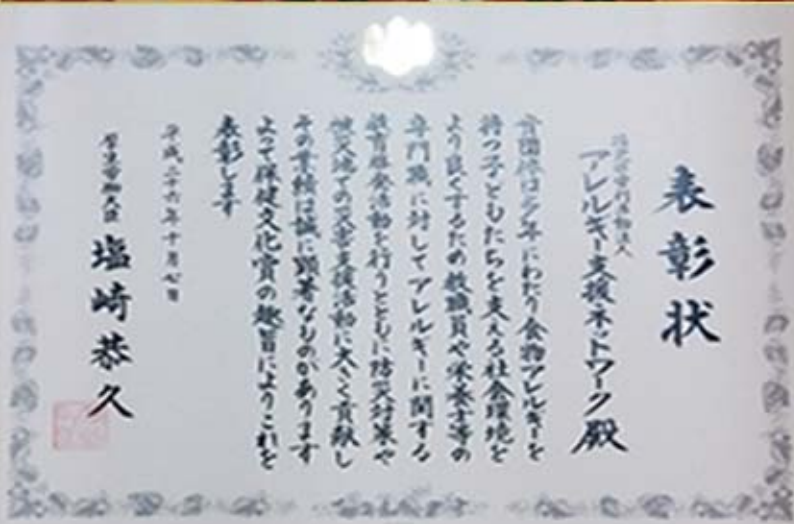 表彰状
特定非営利活動法人
アレルギー支援ネットワーク殿
貴団体は多年にわたり食物アレルギーを
持つ子どもたちを支える社会環境を
より良くするため教職員や栄養士等の
専門職に対してアレルギーに関する
教育啓発活動を行うとともに防災対策や
被災地での災害支援活動に大きく貢献し
その業績は誠に顕著なものがあります
よって保健文化賞の趣旨によりこれを
表彰します
平成二十六年十月 日
厚生労働大臣 塩崎恭久